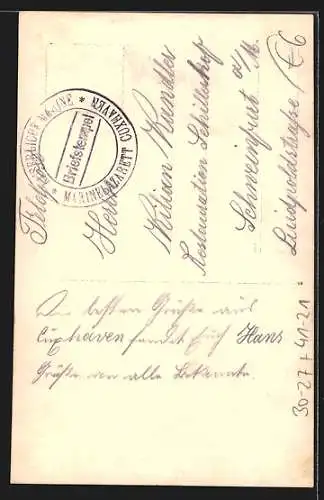 KAISERLICHE MARINE
* MARINELAZARETT CUXHAVEN *
Briefstempel
Herrn
Kilian Kundler
Restauration Schillerhof
Schweinfurt a/M.
Luitpoldstraße
E6
Die besten Grüße aus
Cuxhaven sendet Euch Hans
Grüße an alle Bekannte.
30-27 + 41-21